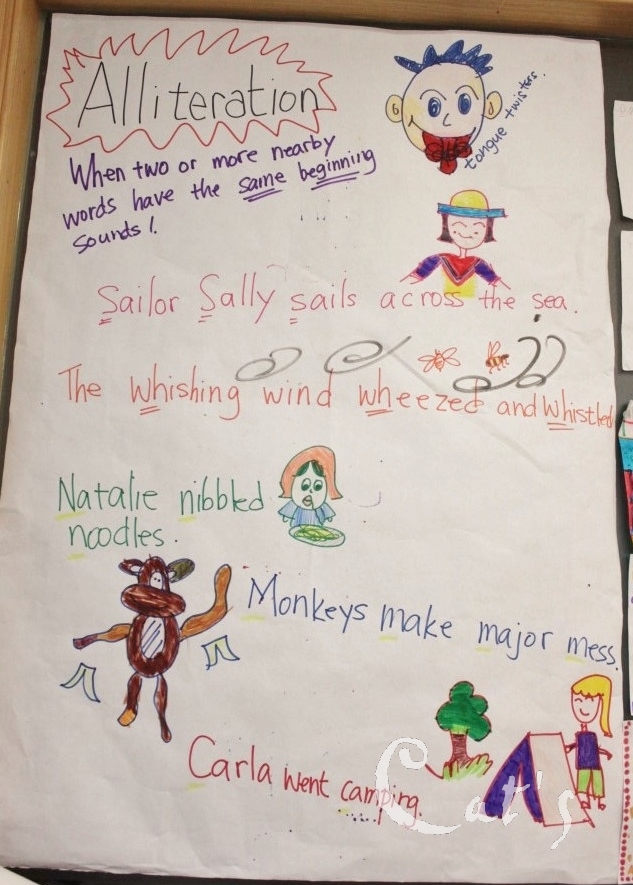 Alliteration
tongue twisters.
When two or more nearby
words have the same beginning
sounds!.
Sailor Sally sails across the sea.
The whishing wind wheezed and whistled
Natalie nibbled
noodles.
Monkeys make major mess.
Carla went camping.
Cat's